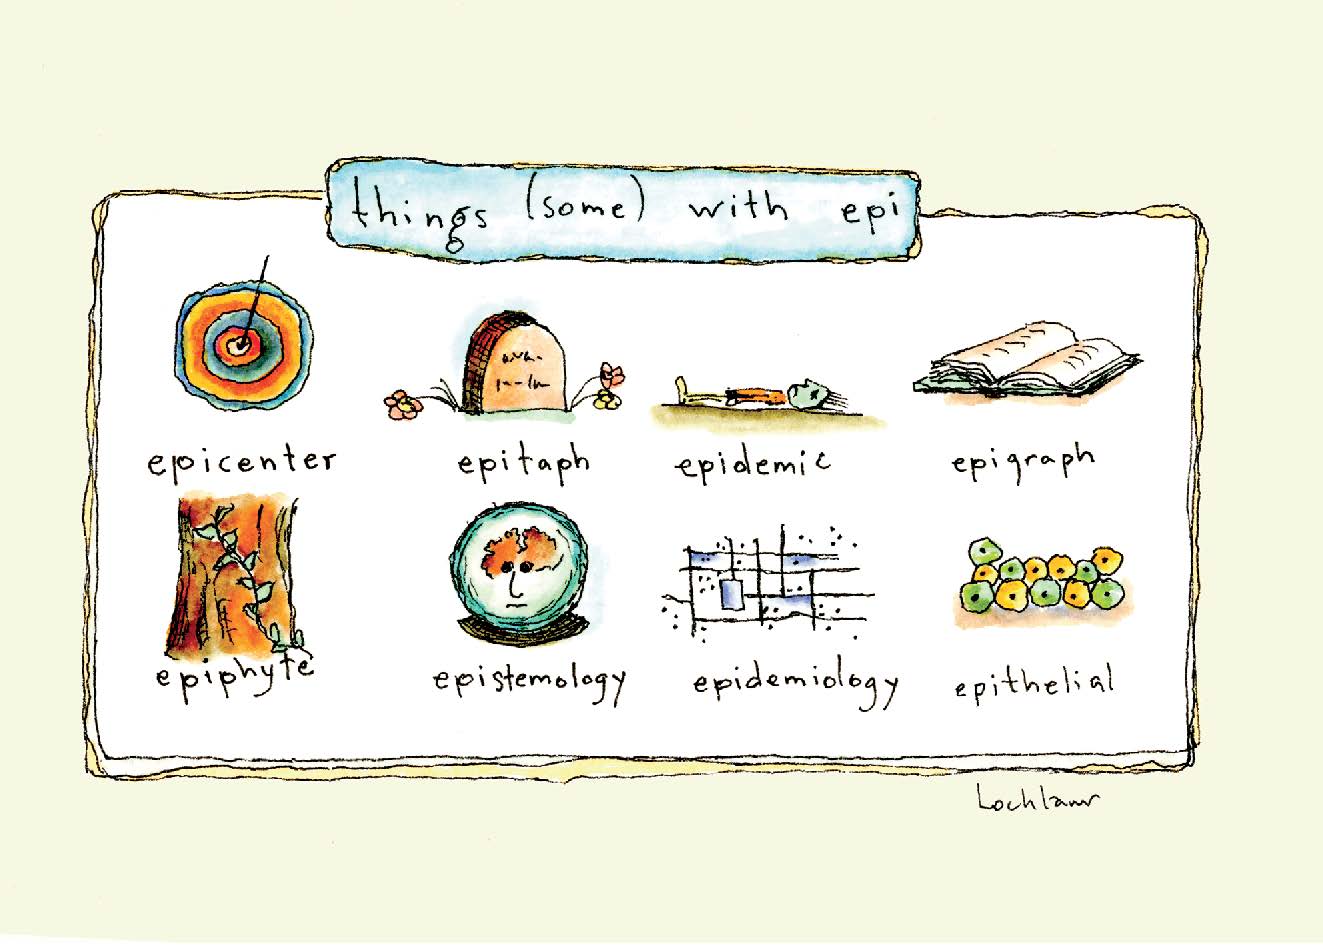 things (some) with epi
epicenter epitaph epidemic epigraph
epiphyte epistemology epidemiology epithelial
Lochlann